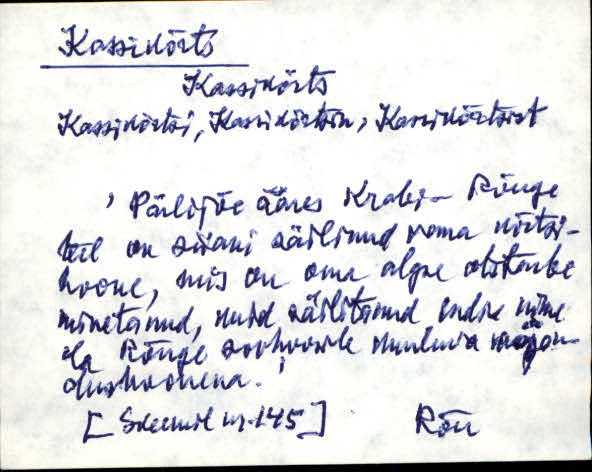 Kassikõrts
Kassikõrts
Kassikõrtsi, Kassikõrtsin, Kassikõrtsist
' Pärlijõe ääres Krabi – Rõuge
teel on siiani säilinud vana kõrtsi-
hoone, mis on oma algse otstarbe
minetanud, kuid säilitanud endise nime
ka Rõuge sovhoosile kuuluva majan-
dushoonena.'
[Skeemil nr. 145] Rõu